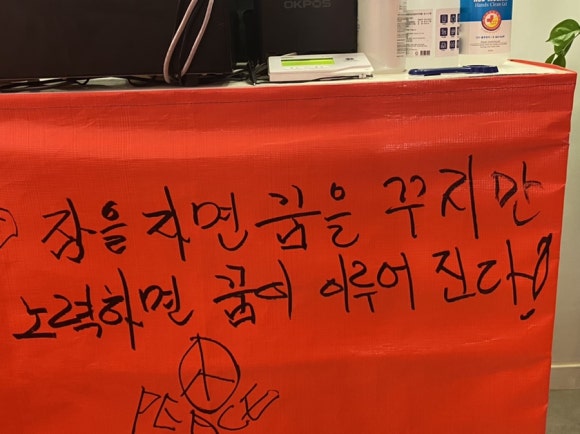 OKPOS
Hands Clean Gel
잠을 자면 꿈을 꾸지만
노력하면 꿈이 이루어 진다!
PEACE